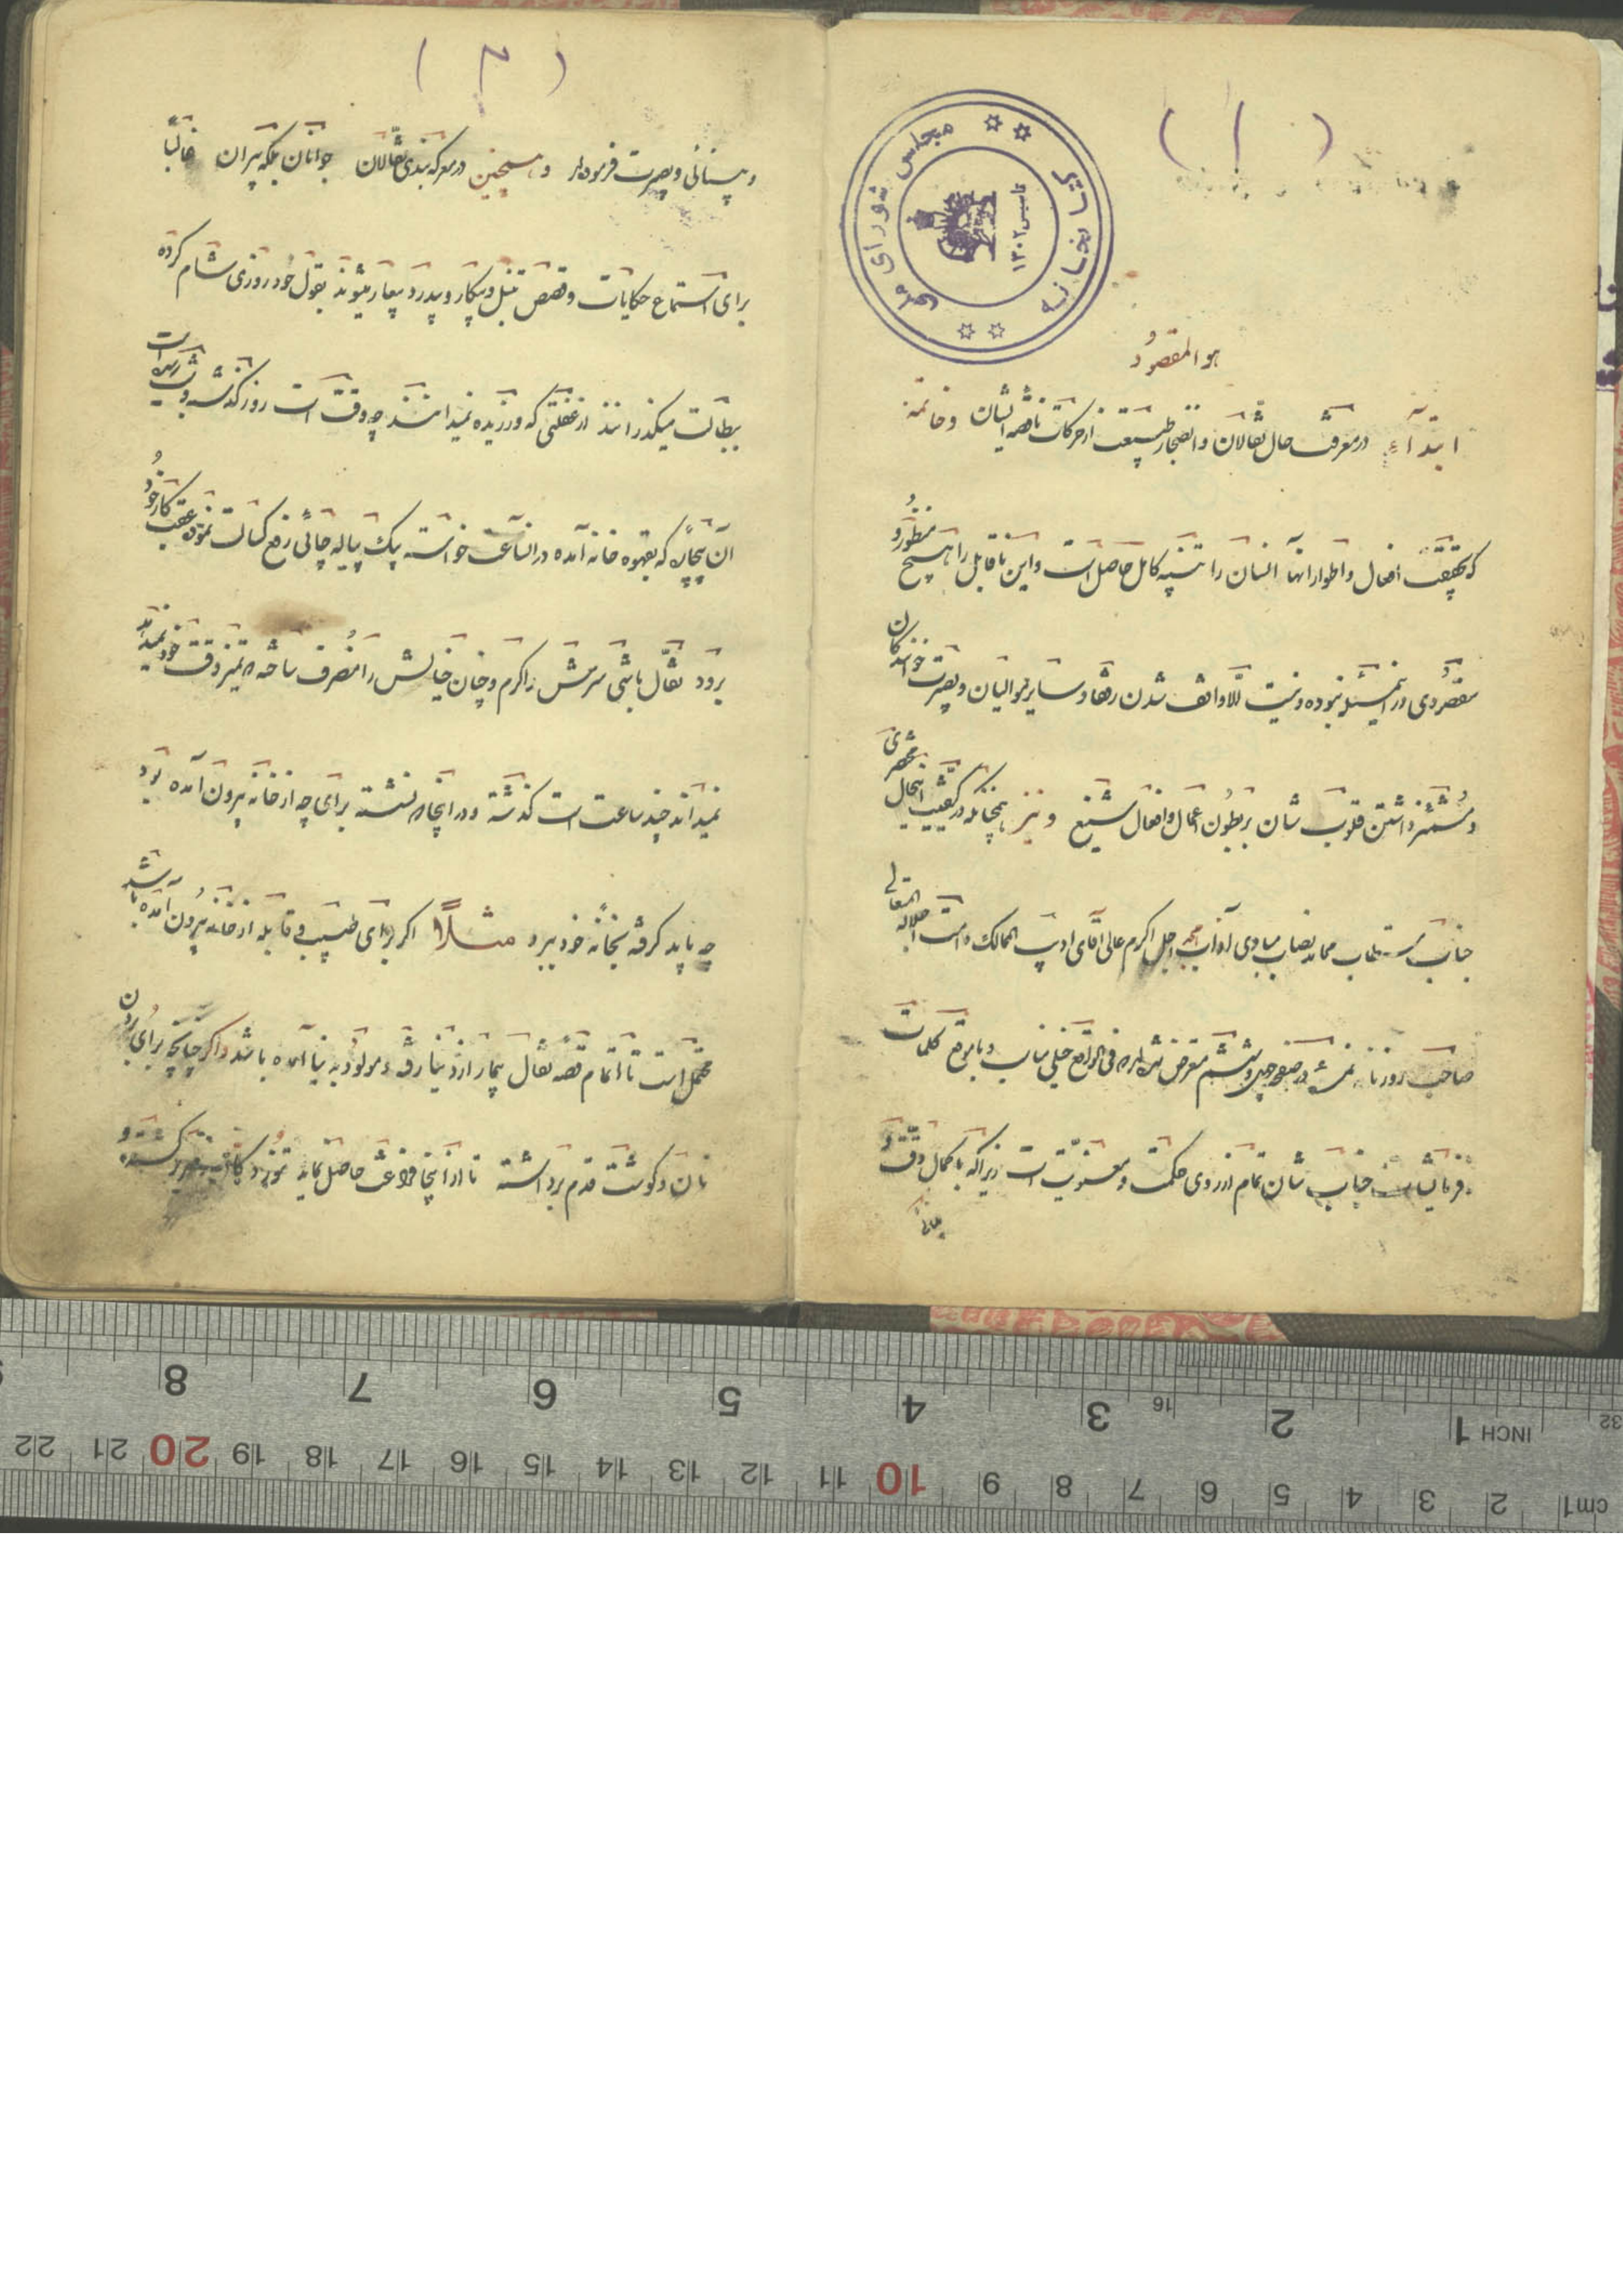 (۱)
کتابخانه مجلس شورای ملی
تاسیس ۱۳۰۲
هو المقصود
ابتدآء در معرفت حال نقالان و انضجار طبیعت از حرکات ناقصه ایشان و خاتمه
که بحقیقت افعال و اطوار آنها انسان را تنبیه کامل حاصل است و این ناقابل را هیچ منظور و
مقصودی در این مسئله نبوده و نیست الّا واقف شدن رفقا و سایر موالیان و بصیرت خوانندکان
و مشمئز داشتن قلوب شان بر بطون اعمال و افعال شنیع و نیز همچنانکه در کیفیت اینحال
جناب مستطاب آداب اجل اکرم عالی آقای ادیب الممالک دامت اجلاله المتعالی
صاحب روزنامه در صفحه چهل و ششم متعرض شده اند فی الواقع خیلی مناسب و با موقع کلمات
فرمایشات جناب شان تمام از روی حکمت و معنویّت است زیرا که با کمال دقّت و
(۲)
و بینائی و بصیرت فرموده اند و همچنین در معرکه بندی نقّالان جوانان بلکه پیران غالباً
برای استماع حکایات و قصص تنبل و بیکار و بیدرد و بیعار میشوند بقول خود روزی شام کرده
ببطالت میکذرانند از غفلتی که ورزیده نمیدانند چه وقت است روز کذشته و شب رسیده است
آن بیچاره که بقهوه خانه آمده در آنساعت خواسته یک پیاله چائی رفع کسالت نموده عقب کار خود
برود نقّال باشی سرش را کرم و چنان خیالش را منصرف ساخته که تمیز وقت خود نمیداند
نمیداند چند ساعت است کذشته و در اینجا نشسته برای چه از خانه بیرون آمده بود
چه باید کرفته بخانه خود ببرد مثلاً اکر برای طبیب و قابله از خانه بیرون آمده باشد
محتمل است تا اتمام قصه نقال بیمار از دنیا رفته و مولود بدنیا آمده باشد و اکر چنانچه برای بردن
نان و کوشت قدم برداشته تا از آنجا فراغت حاصل نماید